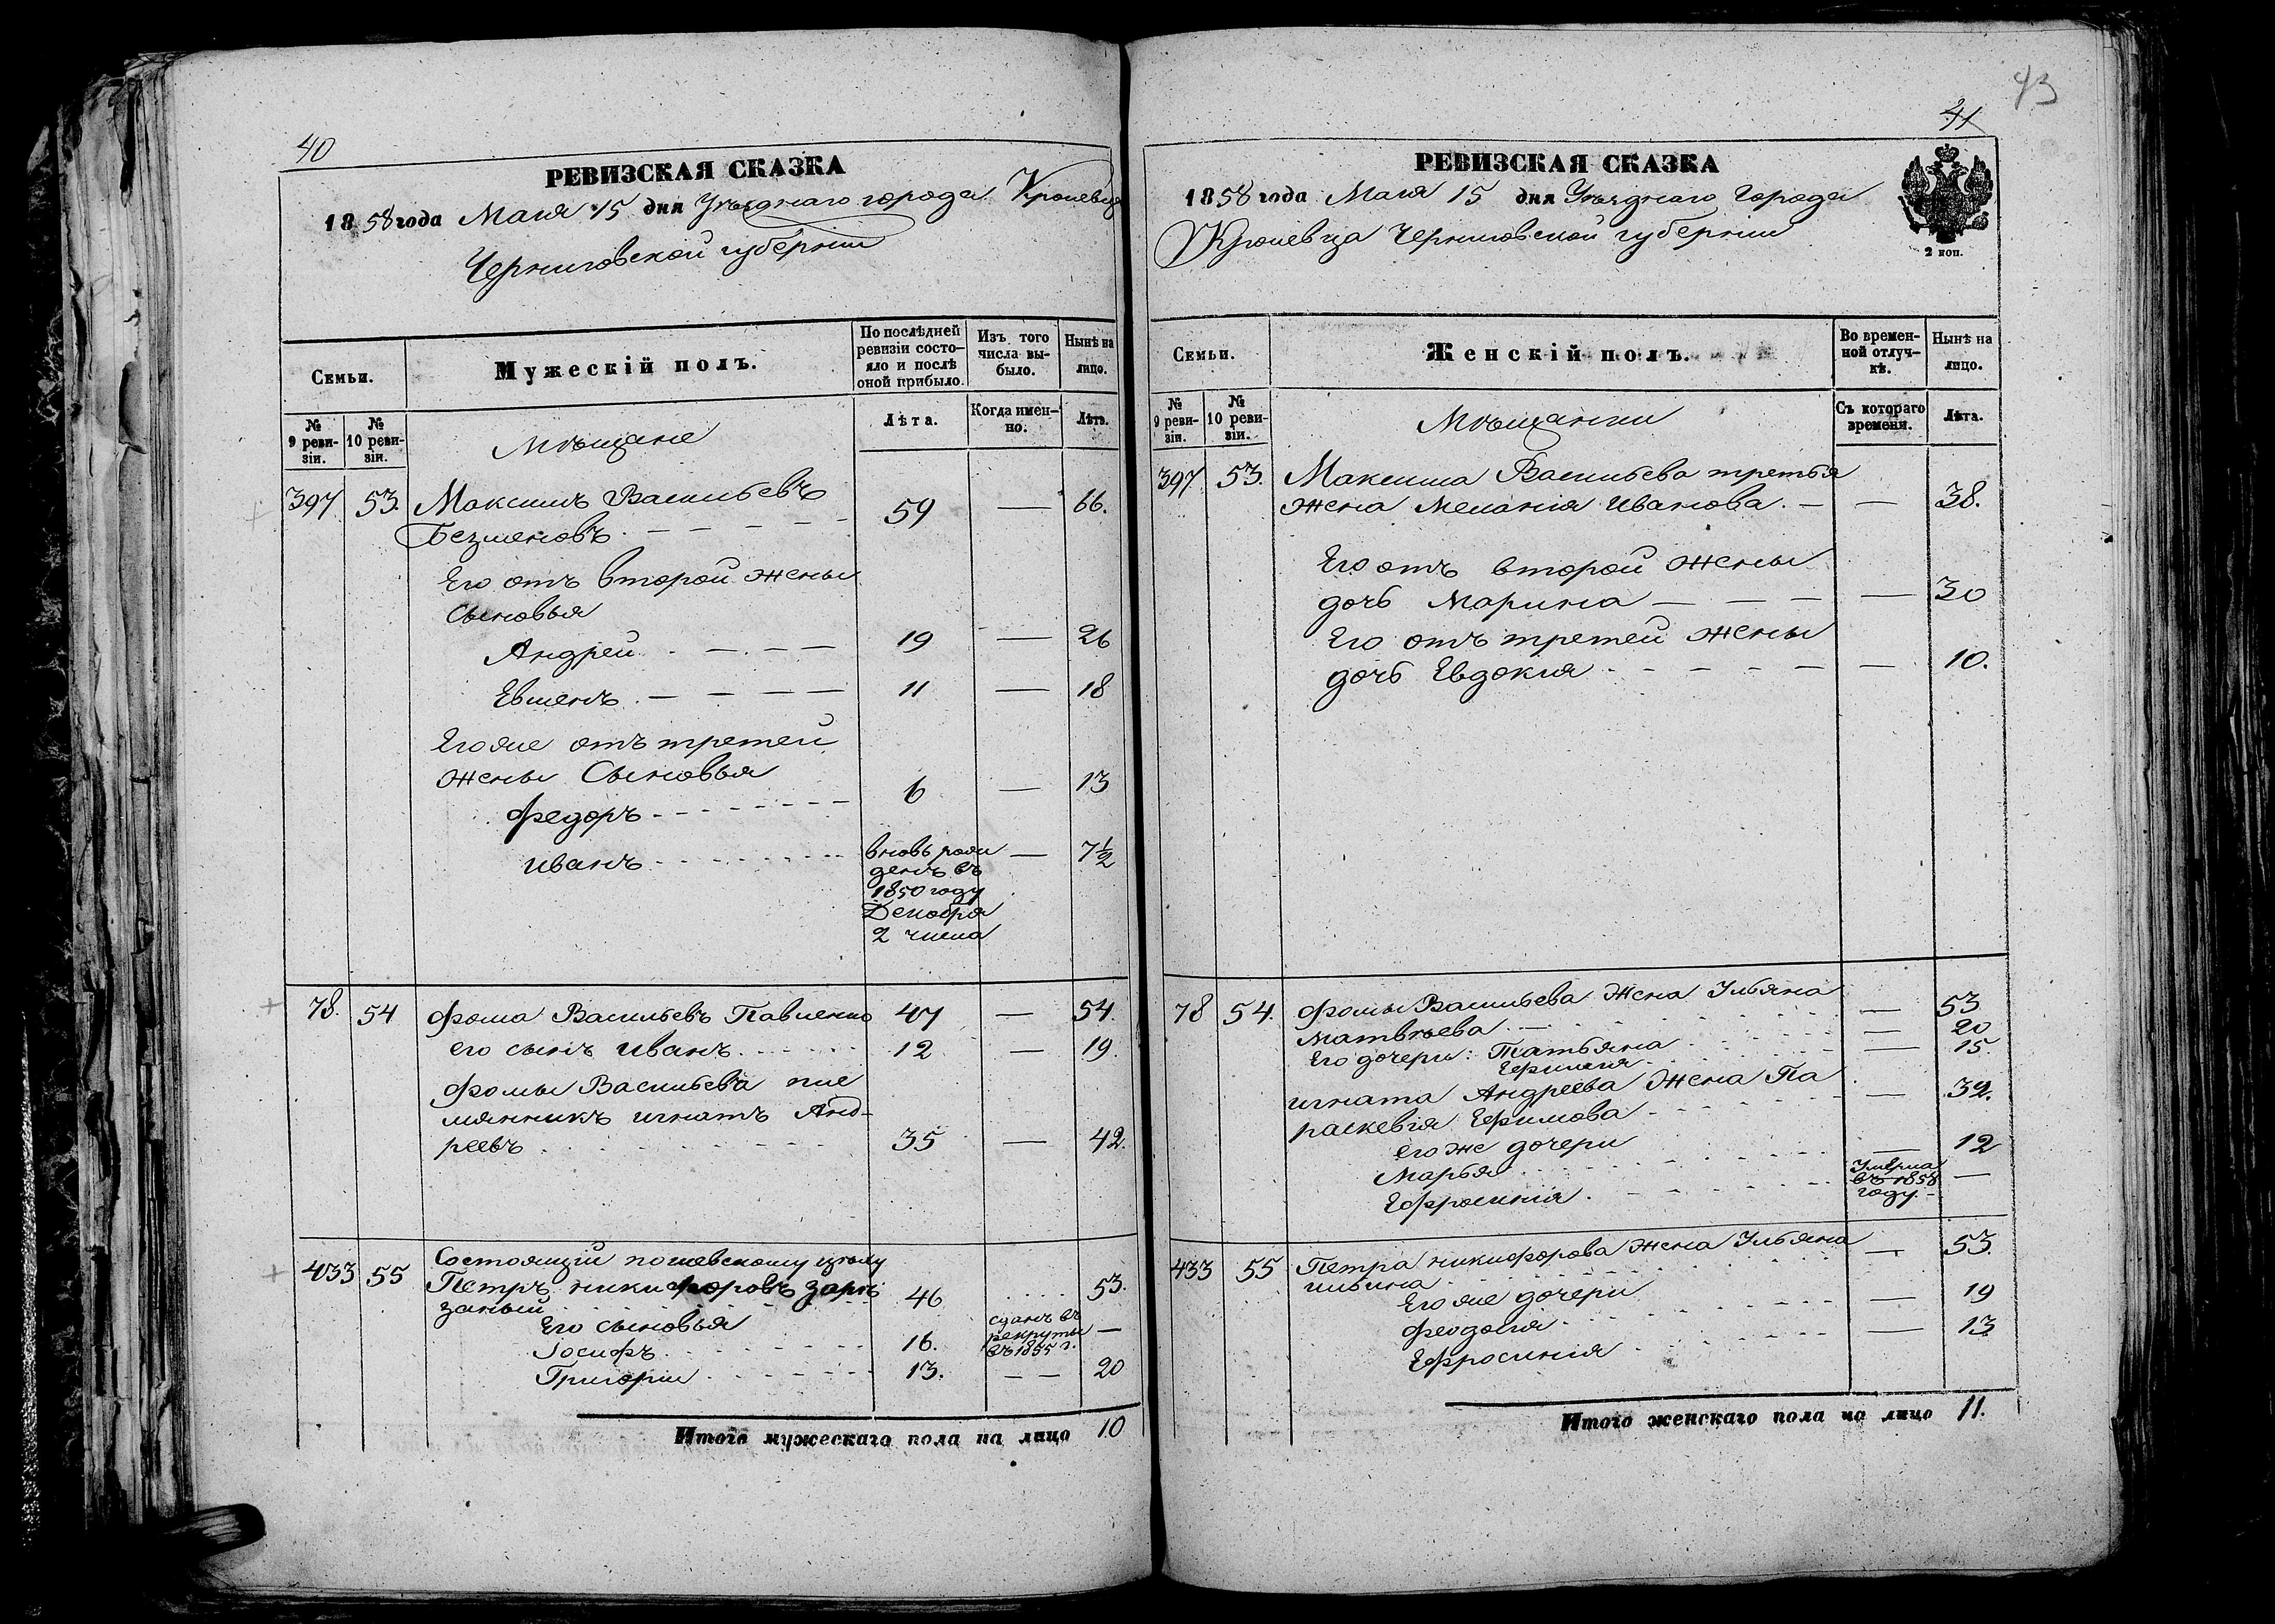 40
РЕВИЗСКАЯ СКАЗКА
1858 года Маія 15 дня Уѣзднаго города Кролевца
Черниговской губерніи
Семьи.
Мужескій полъ.
По послѣдней ревизіи состояло и послѣ оной прибыло.
Изъ того числа выбыло.
Нынѣ на лицо.
№ 9 ревизіи.
№ 10 ревизіи.
Лѣта.
Когда именно.
Лѣта.
Мѣщане
397 53. Максимъ Васильевъ
Безменовъ. 59 — 66.
Его отъ второй жены
Сыновья
Андрей 19 — 26
Евменъ 11 — 18
Его же отъ третей
жены Сыновья
Федоръ 6 — 13
Иванъ вновь рожденъ въ 1850 году Декабря 2 числа — 7½
78. 54 Фома Васильевъ Павленко 47 — 54.
его сынъ Иванъ 12 — 19.
Фомы Васильева пле
мянникъ Игнатъ Анд-
реевъ 35 — 42.
433 55 Состоящій по
Петръ Никифоровъ Заре
заный 46 53.
Его сыновья
Іосифъ 16. сданъ въ рекруты въ 1855 г. —
Григорій 13. — — 20
Итого мужескаго пола на лицо 10
43
41
РЕВИЗСКАЯ СКАЗКА
1858 года Маія 15 дня Уѣзднаго Города
Кролевца Черниговской губерніи
2 коп.
Семьи.
Женскій полъ.
Во временной отлучкѣ.
Нынѣ на лицо.
№ 9 ревизіи.
№ 10 ревизіи.
Съ котораго времени.
Лѣта.
Мѣщанки
397 53. Максима Васильева третья
жена Меланія Иванова. — — 38.
Его отъ второй жены
дочь Марина — 30
Его отъ третей жены
дочь Евдокія — 10.
78 54. Фомы Васильева Жена Ульяна
Матвѣева — 53
Его дочери: Татьяна — 20
— 15.
Игната Андреева Жена Па
раскевія Ефимова — 32.
его же дочери
Марья — 12
Ефросинія. Умерла въ 1858 году. —
433 55 Петра Никифорова Жена Ульяна
Ильина — 53.
Его же дочери
Феодосія — 19
Ефросинія — 13
Итого женскаго пола на лицо 11.